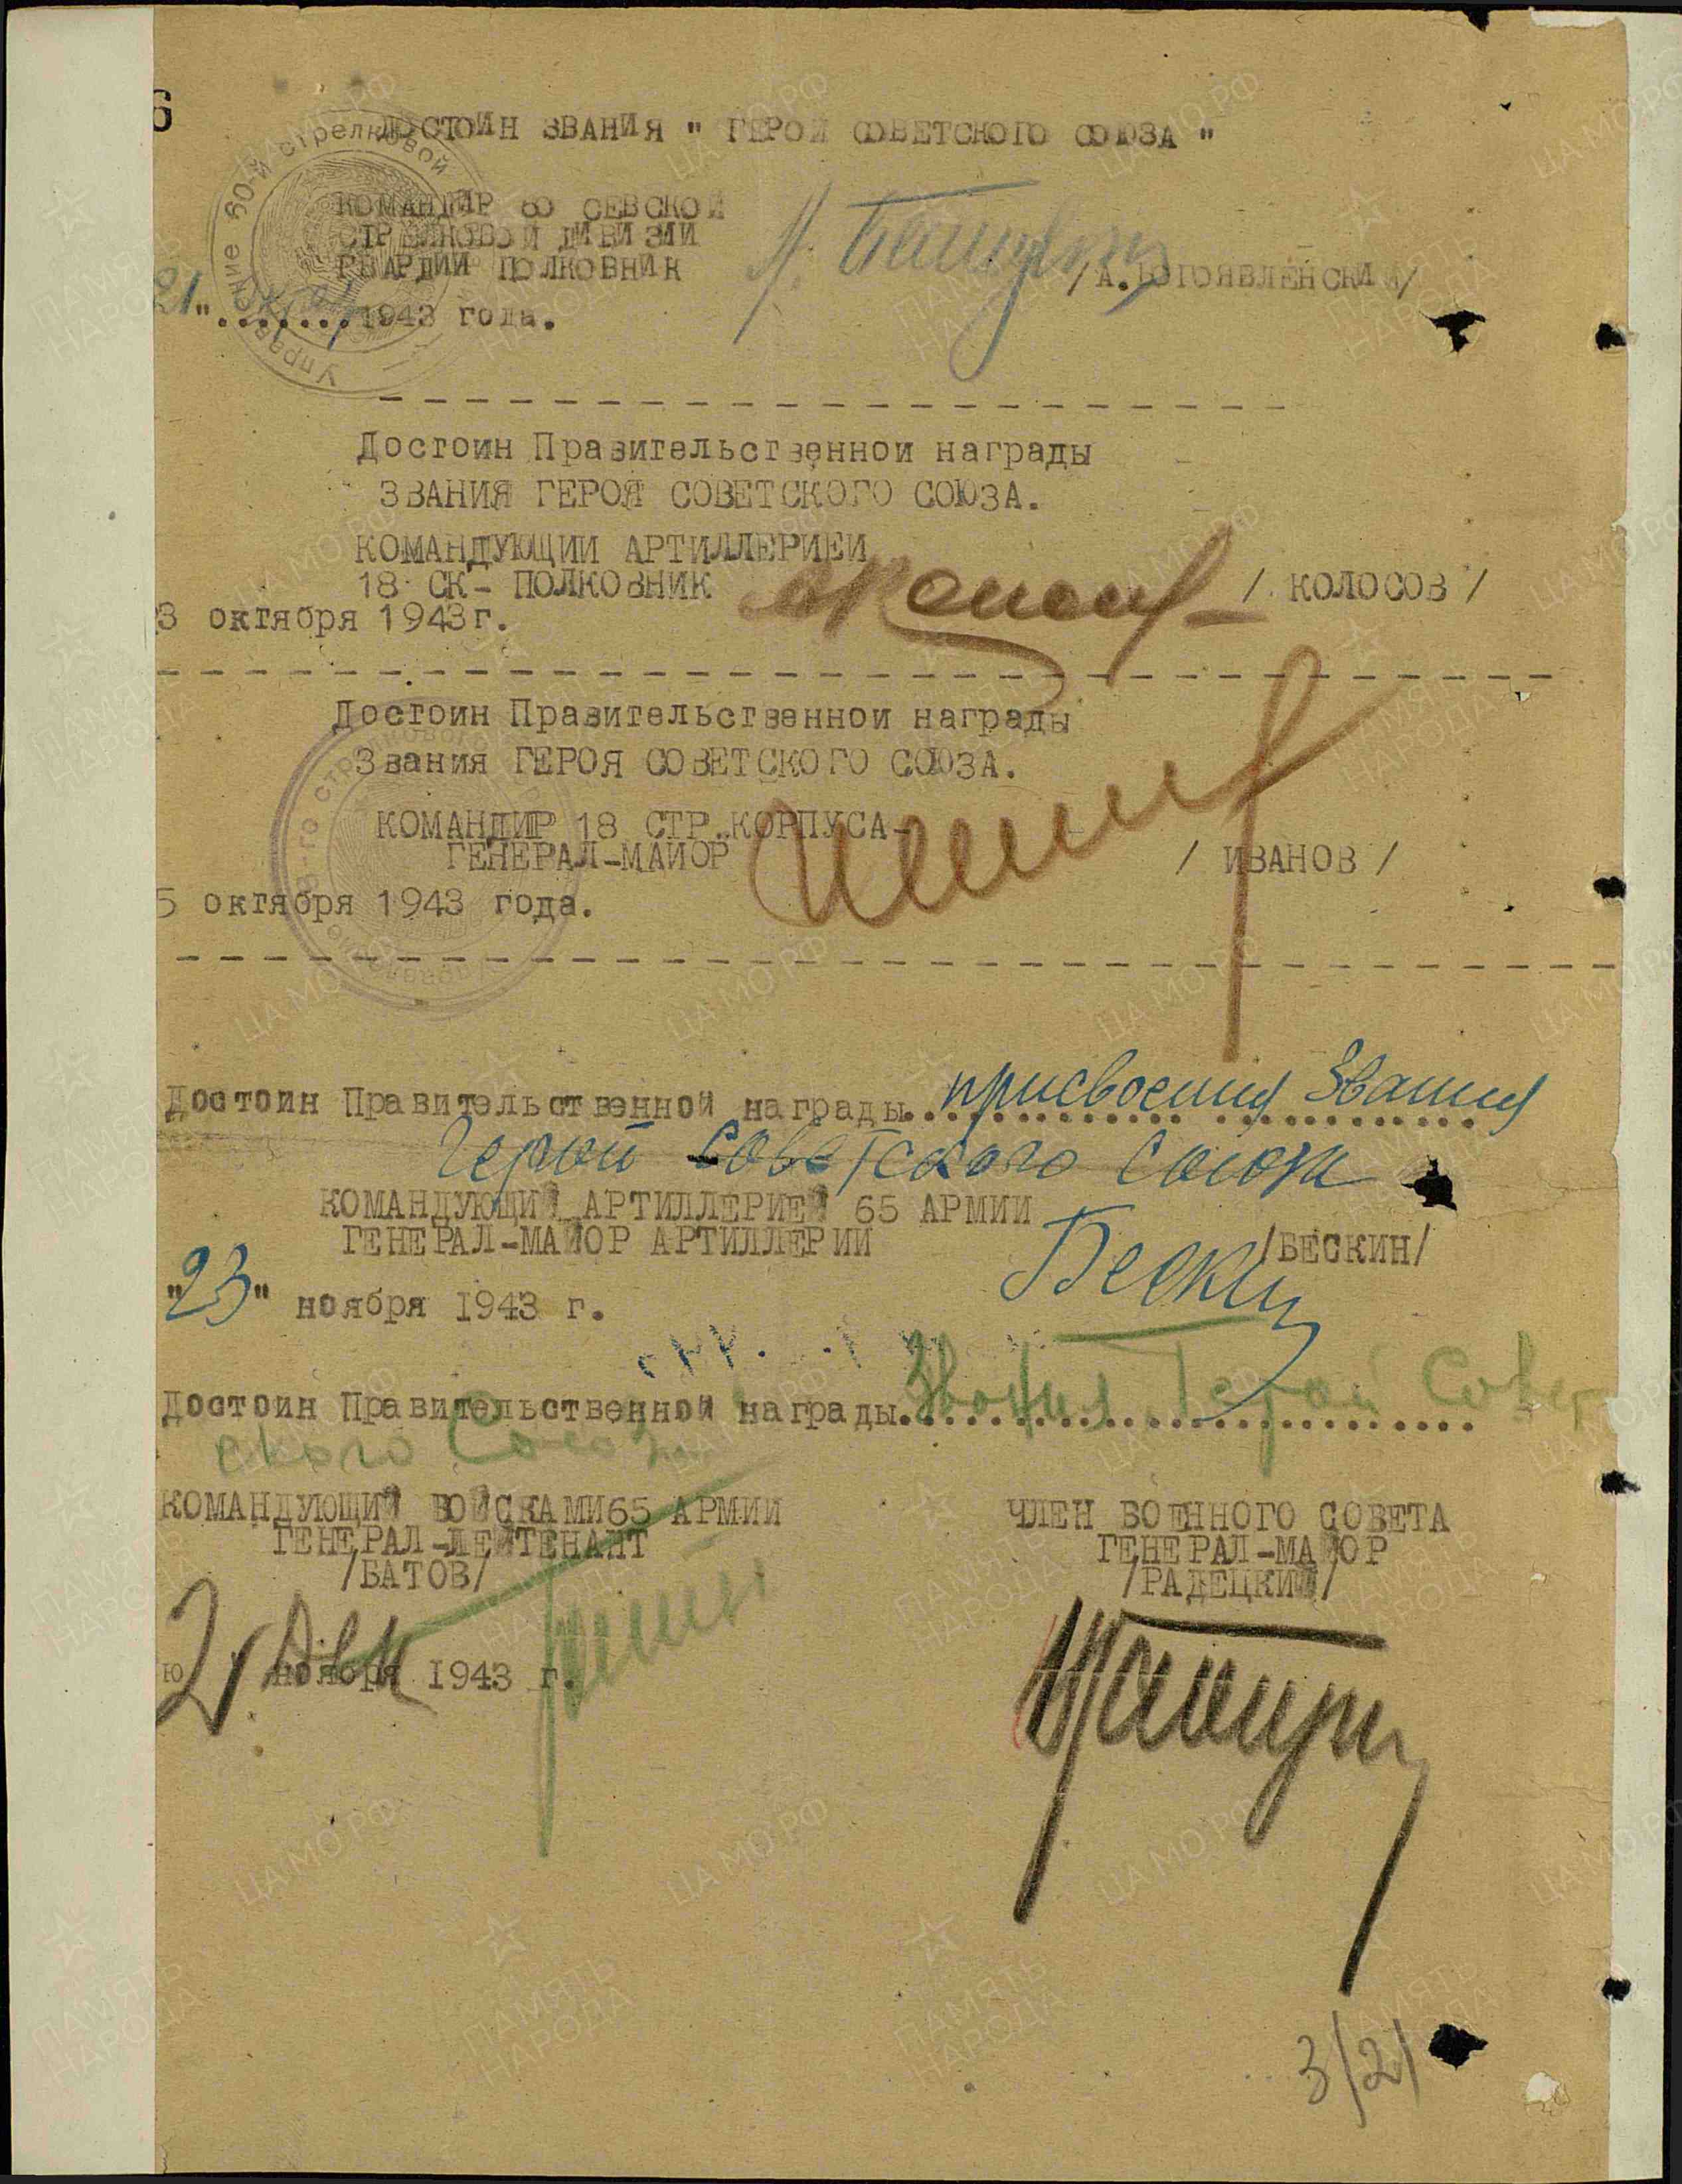 ДОСТОИН ЗВАНИЯ " ГЕРОЙ СОВЕТСКОГО СОЮЗА "
КОМАНДИР 60 СЕВСКОЙ
СТРЕЛКОВОЙ ДИВИЗИИ
ГВАРДИИ ПОЛКОВНИК
/А.БОГОЯВЛЕНСКИЙ/
21"........1943 года.
Достоин Правительственной награды
ЗВАНИЯ ГЕРОЯ СОВЕТСКОГО СОЮЗА.
КОМАНДУЮЩИЙ АРТИЛЛЕРИЕЙ
18 СК- ПОЛКОВНИК / КОЛОСОВ /
3 октября 1943г.
Достоин Правительственной награды
Звания ГЕРОЯ СОВЕТСКОГО СОЮЗА.
КОМАНДИР 18 СТР.КОРПУСА-
ГЕНЕРАЛ-МАЙОР / ИВАНОВ /
5 октября 1943 года.
Достоин Правительственной награды присвоения Звания
Герой Советского Союза
КОМАНДУЮЩИЙ АРТИЛЛЕРИЕЙ 65 АРМИИ
ГЕНЕРАЛ-МАЙОР АРТИЛЛЕРИИ Бескин /БЕСКИН/
"23" ноября 1943 г.
Достоин Правительственной награды Звания Герой Совет
ского Союза
КОМАНДУЮЩИЙ ВОЙСКАМИ65 АРМИИ
ГЕНЕРАЛ-ЛЕЙТЕНАНТ
/БАТОВ/
ЧЛЕН ВОЕННОГО СОВЕТА
ГЕНЕРАЛ-МАЙОР
/РАДЕЦКИЙ/
ноября 1943 г.
3/21